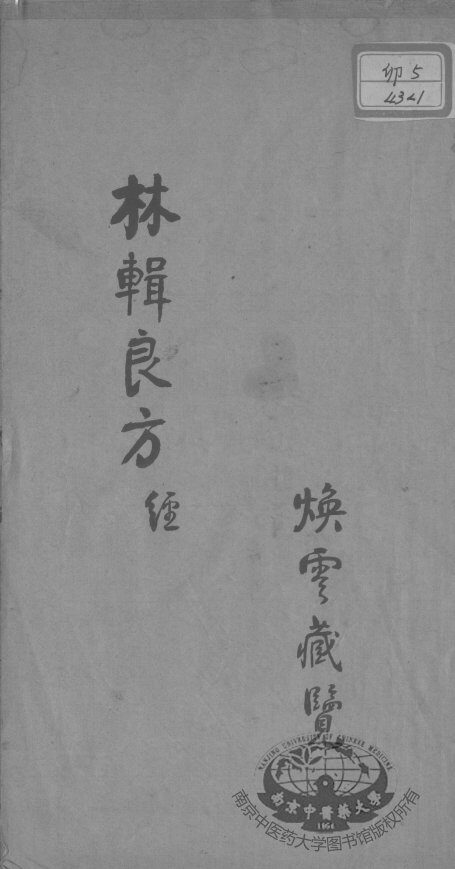 卯5
4341
林輯良方
經
煥雲藏覽
NANJING UNIVERSITY OF CHINESE MEDICINE
南京中醫藥大學
1954
南京中医药大学图书馆版权所有